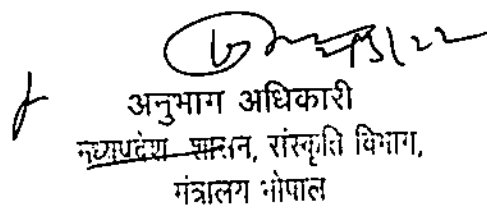 अनुभाग अधिकारी
मध्यप्रदेश शासन, संस्कृति विभाग,
मंत्रालय भोपाल